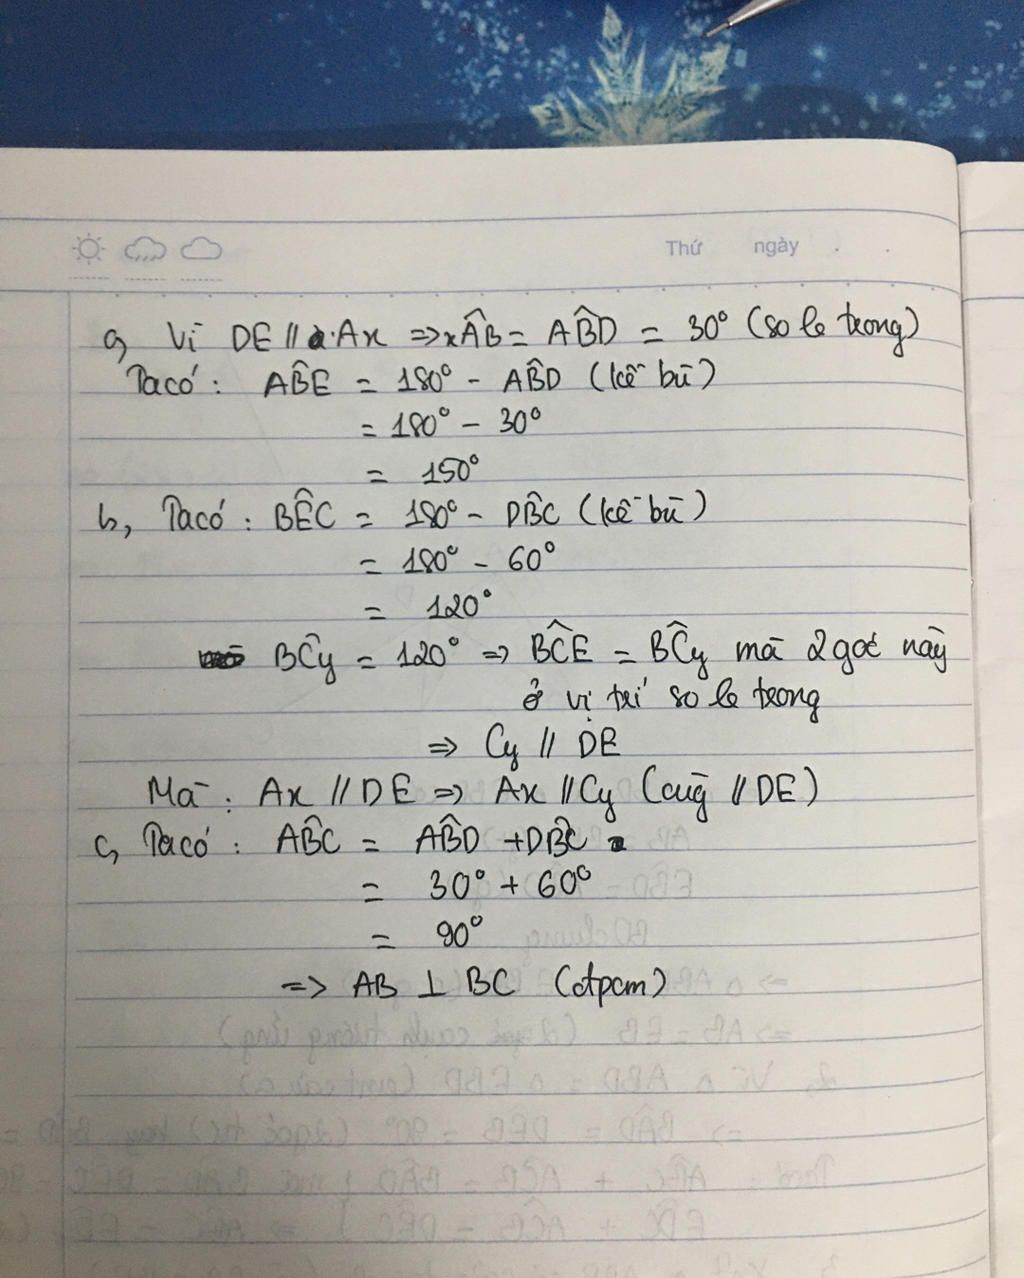 Thứ ngày
a, Vì DE // Ax => xÂB = AB̂D = 30° (so le trong)
Ta có: AB̂E = 180° - AB̂D (kề bù)
= 180° - 30°
= 150°
b, Ta có: BÊC = 180° - DB̂C (kề bù)
= 180° - 60°
= 120°
BĈy = 120° => BĈE = BĈy mà 2 góc này
ở vị trí so le trong
=> Cy // DE
Mà: Ax // DE => Ax // Cy (cùng // DE)
c, Ta có: AB̂C = AB̂D + DB̂C
= 30° + 60°
= 90°
=> AB ⊥ BC (đpcm)